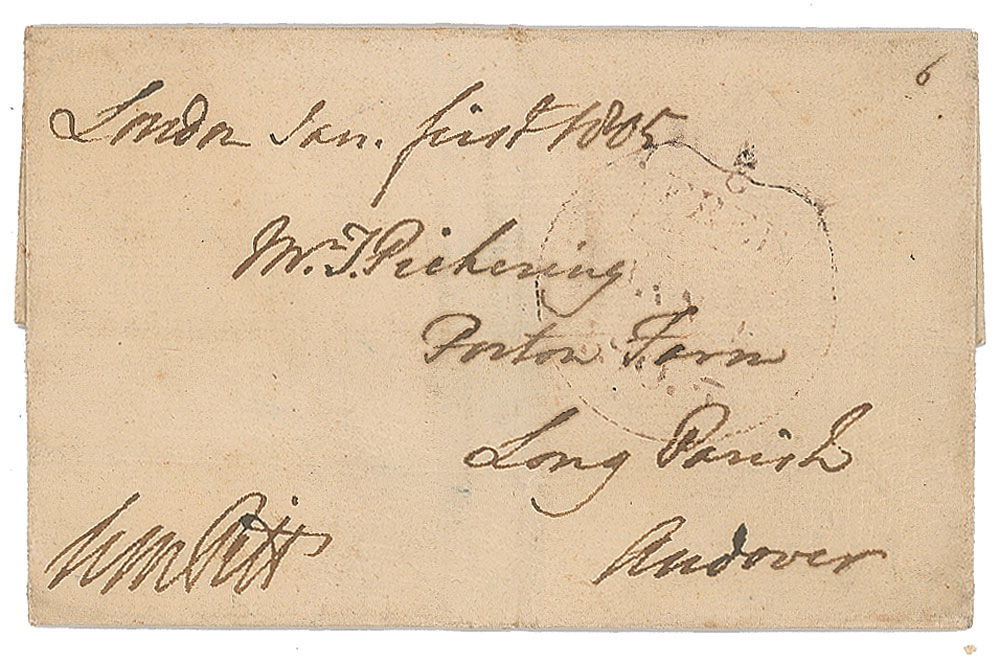 6
London Jan. first 1805
Mr. T. Pickering
Forton Farm
Long Parish
Andover
Wm Pitt